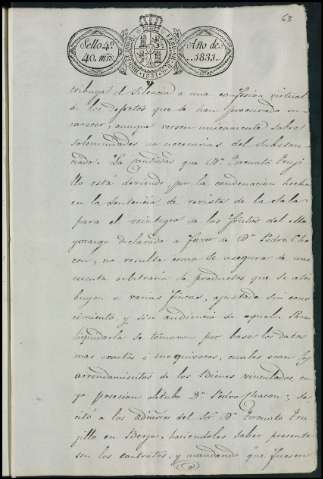 63
Sello 4º
40. mrs.
Año de
1831.
tribuya el silencio a una confesion virtual
de los defectos que le han procurado
aunque versen unicamente sobre
solemnidades no necesarias del
La cantidad que Dn. Gonzalo Truji
llo está deviendo por la condenacion hecha
en la Sentencia de revista de la Sala
para el reintegro de los frutos del Ma
yorazgo declarado a favor de Dn. Pedro Cha
con, no resulta como se asegura de una
cuenta arbitraria de productos que se atri
buyen a varias fincas, ajustada sin cono
cimiento y sin audiencia de aquel. Para
liquidarla se tomaron por base los datos
mas ciertos é inequivocos, cuales eran los
arrendamientos de los Bienes vinculados en
ya posesion Dn. Pedro Chacon; se
citó a los del Sr. Dn. Gonzalo Tru
jillo en haciendoles saber presenta
sen los contratos, y mandando que fuesen